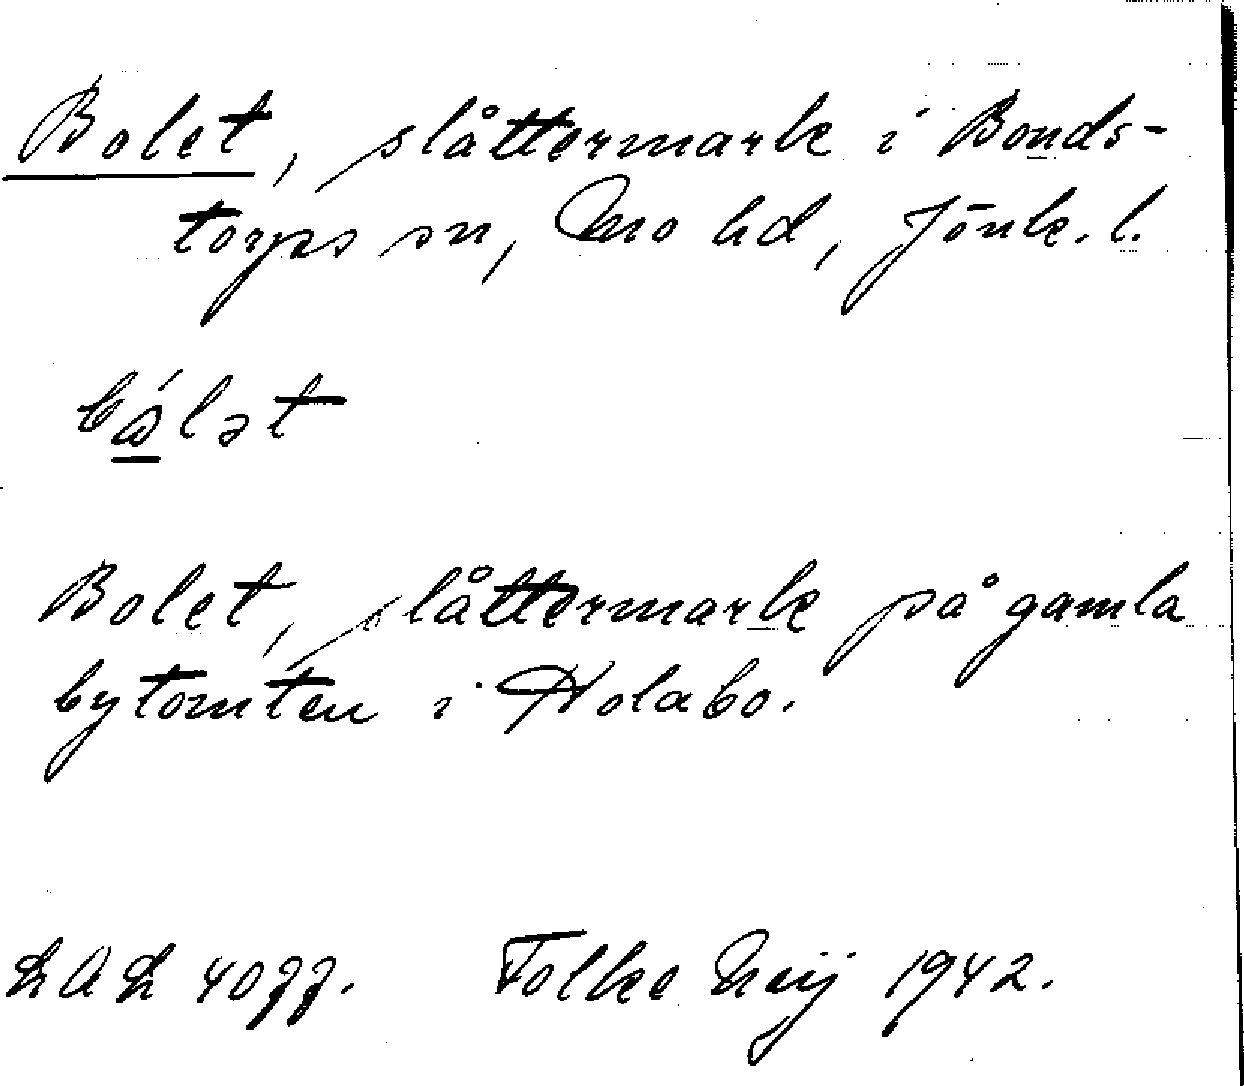 Bolet, slåttermark i Bonds-
torps sn, Mo hd, Jönk. l.
Bolet, slåttermark på gamla
bytomten i Holabo.
LAL Folke Neij 1942.